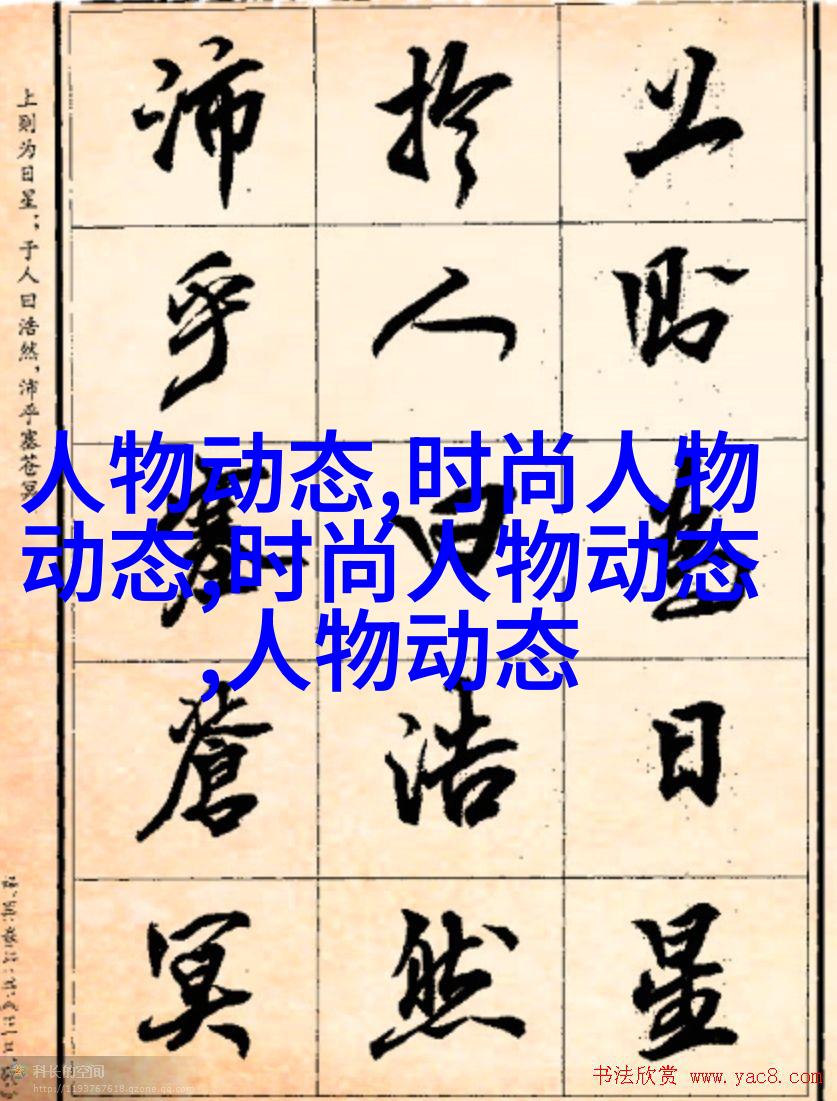 上则为日星；于人曰浩然，沛乎塞苍冥
上則為日星
於人曰浩然
沛乎塞蒼冥
人物动态,时尚人物
动态,时尚人物动态
,人物动态
科长的空间
http://1193767618.qzone.qq.com
书法欣赏 www.yac8.com